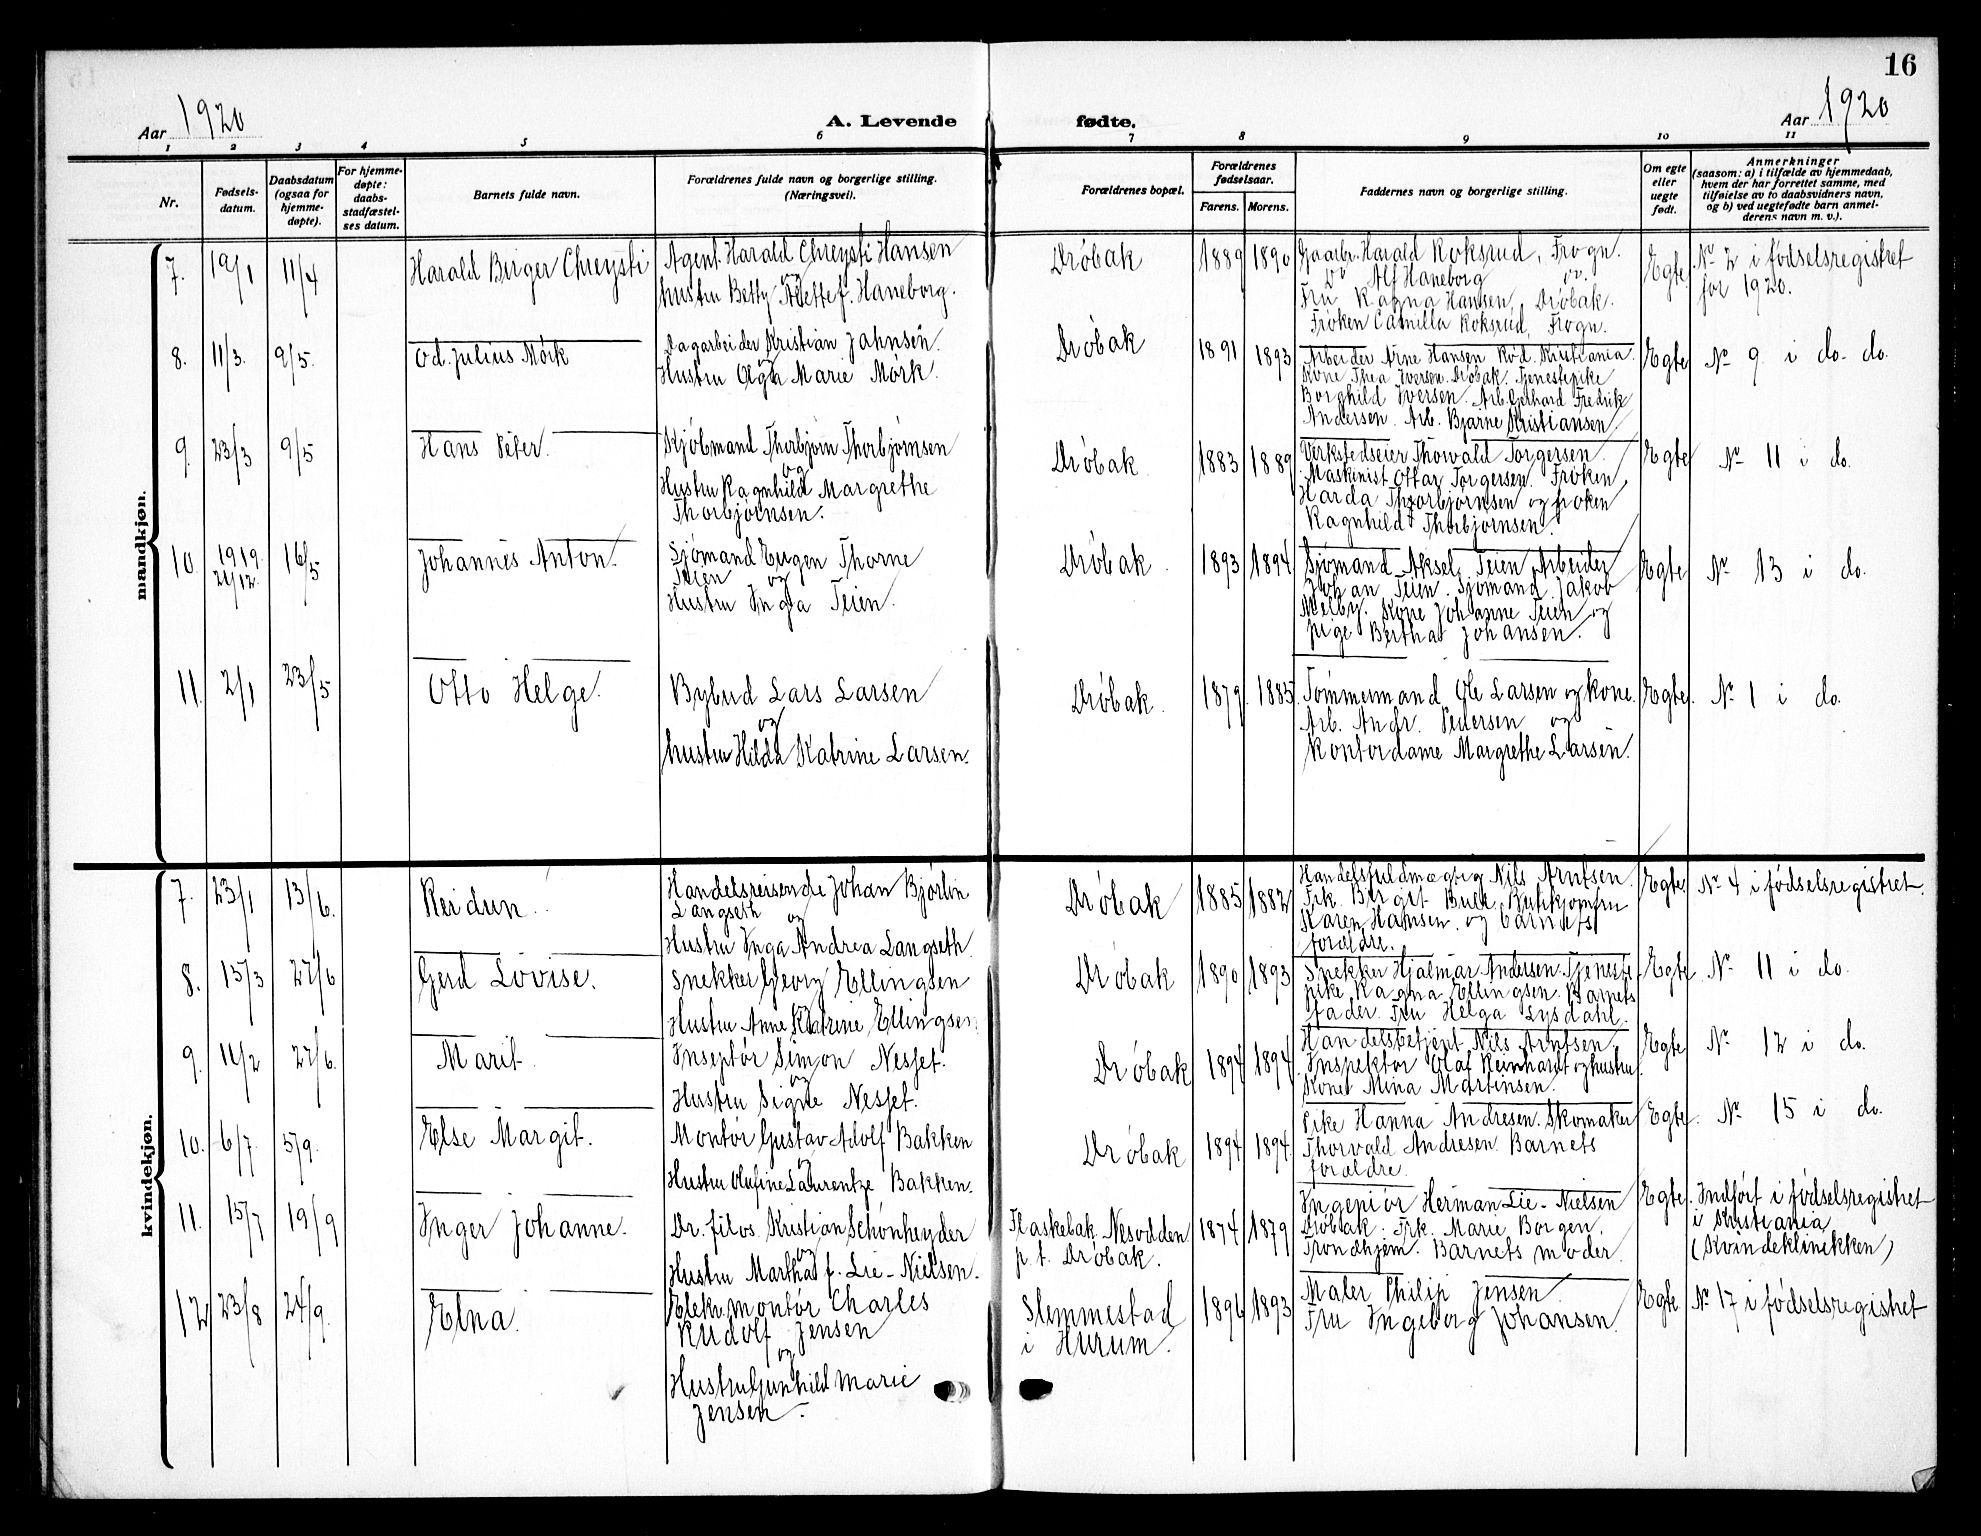 16
Aar 1920
A. Levende fødte.
Aar 1920
1 2 3 4 5 6 7 8 9 10 11
Nr.
Fødsels-
datum.
Daabsdatum
(ogsaa for
hjemme-
døpte).
For hjemme-
døpte:
daabs-
stadfæstel-
ses datum.
Barnets fulde navn.
Forældrenes fulde navn og borgerlige stilling.
(Næringsvei).
Forældrenes bopæl.
Forældrenes
fødselsaar.
Farens. Morens.
Faddernes navn og borgerlige stilling.
Om egte
eller
uegte
født.
Anmerkninger
(saasom: a) i tilfælde av hjemmedaab,
hvem der har forrettet samme, med
tilføielse av to daabsvidners navn,
og b) ved uegtefødte barn anmel-
derens navn m. v.).
mandkjøn.
7. 19/1 11/4
Harald Birger Chreysti
Agent. Harald Chreysti Hansen
og
hustru Betty Anette f. Haneborg.
Drøbak
1889 1890
Gaarbr. Harald Koksrud, Frogn.
Do Alf Haneborg do.
Fru Ragna Hansen, Drøbak.
Frøken Camilla Koksrud, Frogn.
Egte
No 2 i fødselsregistret
for 1920.
8. 11/3. 9/5.
Od. Julius Mörk
Dagarbeider Kristian Jahnsen.
og
Hustru Olga Marie Mörk.
Drøbak
1891 1893
Arbeider Arne Hansen Rød. Kristiania.
Kone Thea Iversen. Drøbak. Tjenestepike
Borghild Iversen. Arb. Gerhard Fredrik
Andersen. Arb. Bjarne Kristiansen.
Egte
No 9 i do. do.
9. 23/3 9/5
Hans Peter.
Kjøbmand Thorbjørn Thorbjørnsen
og
Hustru Ragnhild Margrethe
Thorbjørnsen.
Drøbak.
1883 1889
Verkstedseier Thorvald Torgersen.
Maskinist Ottar Torgersen. Frøken
Harda Thorbjørnsen og frøken
Ragnhild Thorbjørnsen.
Egte
No 11 i do.
10. 1919. 21/12. 16/5
Johannes Anton.
Sjømand Eugen Thorne
Teien og
Hustru Inga Teien.
Drøbak.
1893 1894
Sjømand Aksel Teien. Arbeider
Johan Teien. Sjømand Jakob
Melby. Kone Johanne Teien og
pige Bertha Johansen.
Egte
No 13 i do.
11. 2/1 23/5
Otto Helge.
Bybud Lars Larsen
og
hustru Hilda Katrine Larsen.
Drøbak.
1879. 1885.
Tømmermand Ole Larsen og kone.
Arb. Andr. Pedersen og
Kontordame Margrethe Larsen.
Egte.
No 1 i do.
kvindekjøn.
7. 23/1 13/6.
Reidun.
Handelsreisende Johan Bjørlin
Langseth og
Hustru Inga Andrea Langseth.
Drøbak
1885 1882
Handelsfuldmægtig Nils Arntsen.
Frk. Birgit Buck. Butikjomfru
Karen Hansen og barnets
forældre.
Egte.
No 4 i fødselsregistret.
8. 15/3 27/6
Gerd Lovise.
Snekker Georg Ellingsen
Hustru Anne Katrine Ellingsen
Drøbak
1890 1893
Snekker Hjalmar Andersen. Tjeneste
pike Ragna Ellingsen. Barnets
fader. Fru Helga Lysdahl.
Egte.
No 11 i do.
9. 11/2 27/6.
Marit.
Inseptør Simon Nesset.
og
Hustru Signe Nesset.
Drøbak
1894 1894
Handelsbetjent Nils Arntsen.
Inspektør Olaf Reinhardt og hustru.
Kone Mina Martinsen.
Egte
No 12 i do.
10. 6/7. 5/9.
Else Margit.
Montør Gustav Adolf Bakken
og
Hustru Olufine Laurentze Bakken.
Drøbak
1894 1894.
Pike Hanna Andresen. Skomaker
Thorvald Andresen. Barnets
forældre.
Egte.
No 15 i do.
11. 15/7 19/9
Inger Johanne.
Dr. filos. Kristian Schønheyder
og
Hustru Martha f. Lie-Nielsen.
Flaskebæk. Nesodden
p. t. Drøbak.
1874 1879
Ingeniør Herman Lie-Nielsen
Drøbak. Frk. Marie Borgen.
Trondhjem. Barnets moder.
Egte.
Indført i fødselsregistret
i Kristiania
(Kvindeklinikken)
12 23/8 24/9.
Elna.
Elektr. montør Charles
Rudolf Jensen
og
Hustru Gunhild Marie
Jensen.
Slemmestad
i Hurum.
1896 1893
Maler Philip Jensen.
Fru Ingeborg Johansen.
Egte
No 17 i fødselsregistret